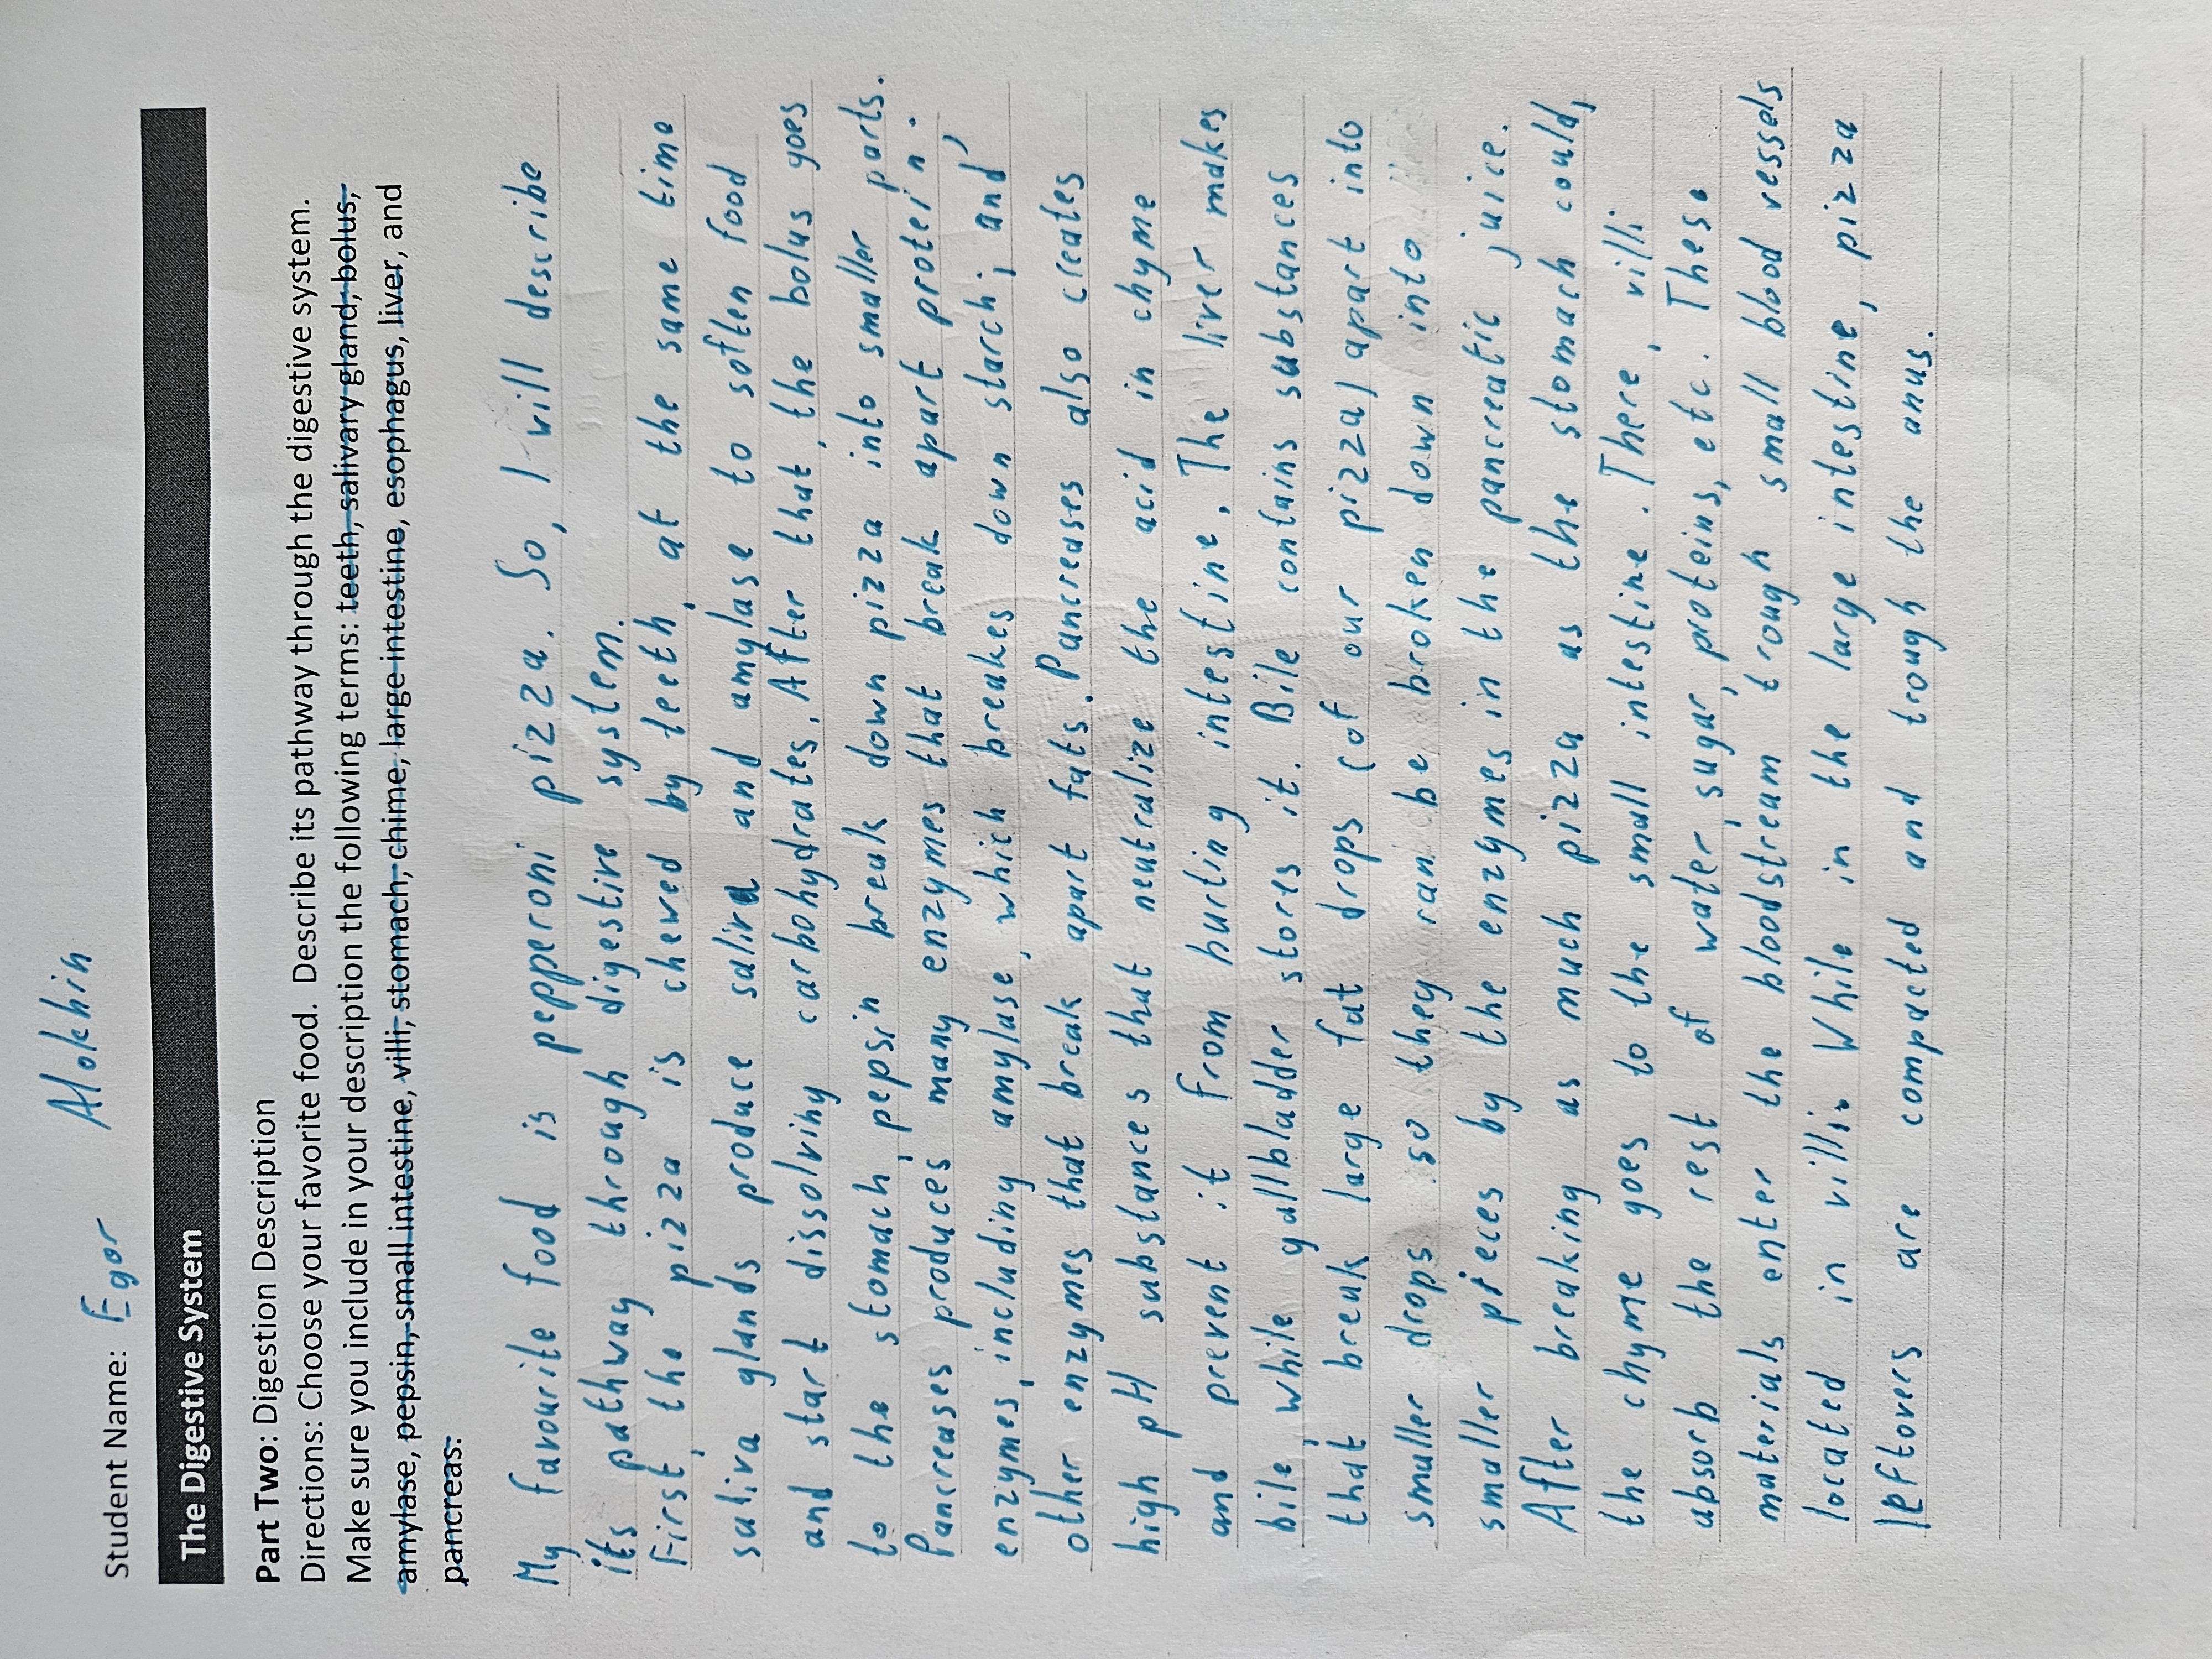 Student Name: Egor Alokhin
The Digestive System
Part Two: Digestion Description
Directions: Choose your favorite food. Describe its pathway through the digestive system.
Make sure you include in your description the following terms: teeth, salivary gland, bolus,
amylase, pepsin, small intestine, villi, stomach, chime, large intestine, esophagus, liver, and
pancreas.
My favourite food is pepperoni pizza. So, I will describe
its pathway through digestive system.
First, the pizza is chewed by teeth, at the same time
saliva glands produce saliva and amylase to soften food
and start dissolving carbohydrates. After that, the bolus goes
to the stomach, pepsin break down pizza into smaller parts.
Pancreases produces many enzymes that break apart protein;
enzymes, including amylase, which breakes down starch; and
other enzymes that break apart fats. Pancreases also creates
high pH substances that neutralize the acid in chyme
and prevent it from hurting intestine. The liver makes
bile, while gallbladder stores it. Bile contains substances
that break large fat drops (of our pizza) apart into
smaller drops so they can be broken down into
smaller pieces by the enzymes in the pancreatic juice.
After breaking as much pizza as the stomach could,
the chyme goes to the small intestine. There, villi
absorb the rest of water, sugar, proteins, etc. These
materials enter the bloodstream trough small blood vessels
located in villi. While in the large intestine, pizza
leftovers are compacted and trough the anus.